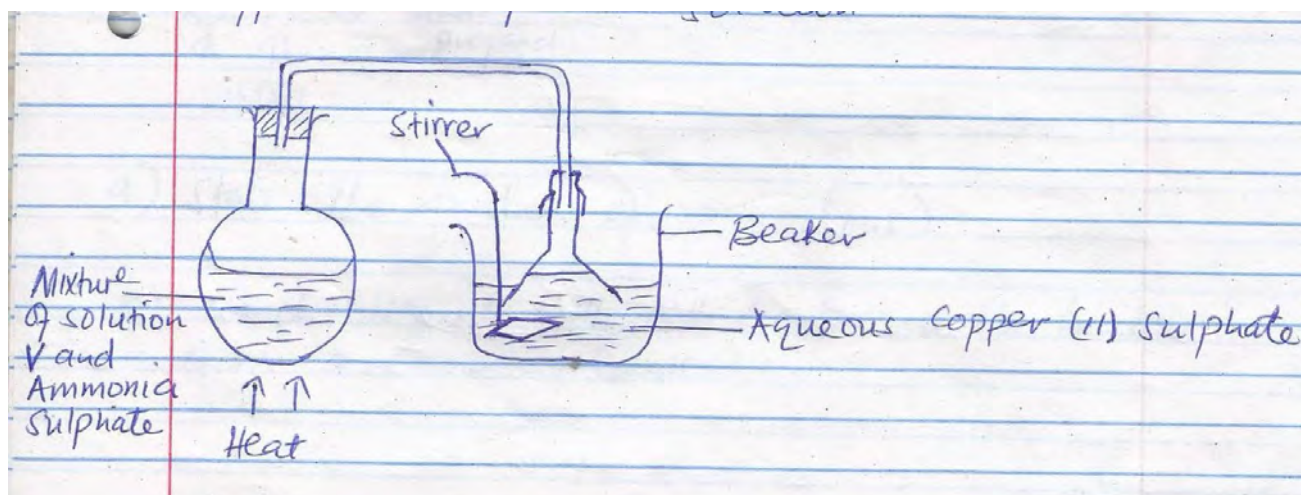 Stirrer
Beaker
Mixture
of solution
V and
Ammonia
Sulphate
Aqueous Copper (11) Sulphate
Heat